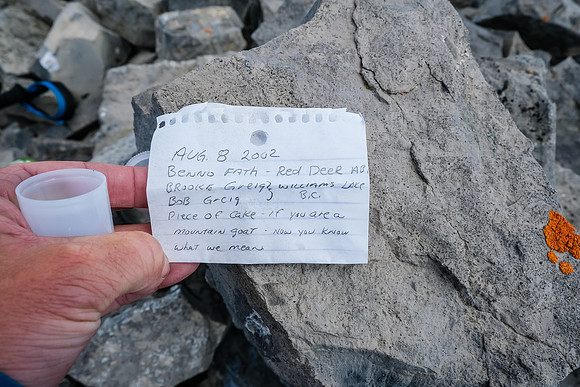 AUG. 8 2002
BENNO FATH - RED DEER AB.
BROOKE Greig } WILLIAMS LAKE
BOB Greig B.C.
Piece of Cake - if you are a
mountain goat - now you know
what we mean